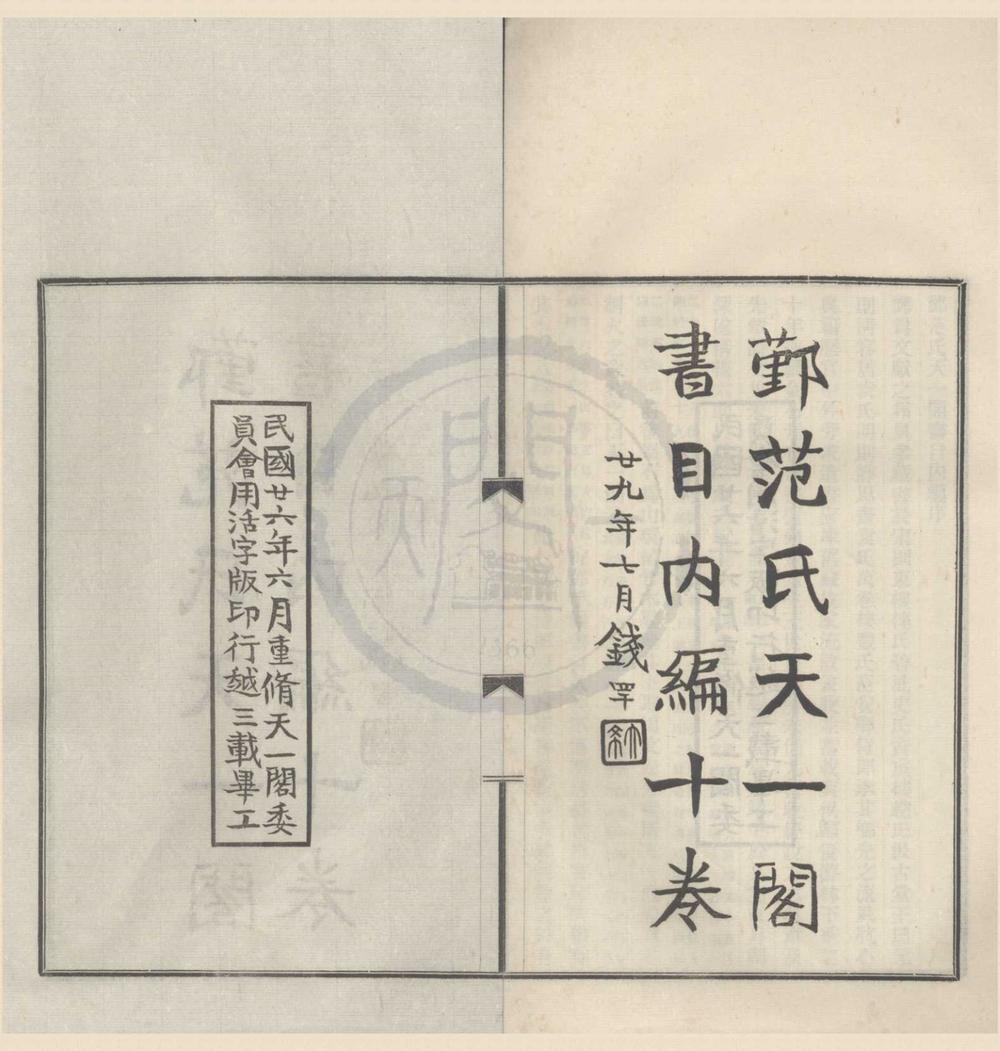 鄞范氏天一閣
書目内編十卷
廿九年七月錢罕
民國廿六年六月重脩天一閣委
員會用活字版印行越三載畢工